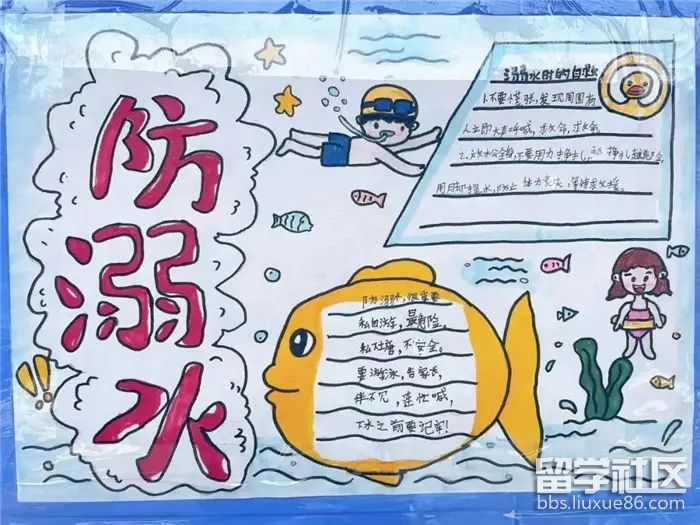 防
溺
水
溺水时的自救
1.不要慌张,发现周围有
人立即大声呼喊,求救命,求救命
2.放松全身,不要用力挣扎,
体力丧失,等待求救援。
防溺水,很重要
私自游,最危险。
私在塘,不安全。
要游泳,告家长,
伴不见,连忙喊,
水之前要记牢!
留学社区
bbs.liuxue86.com